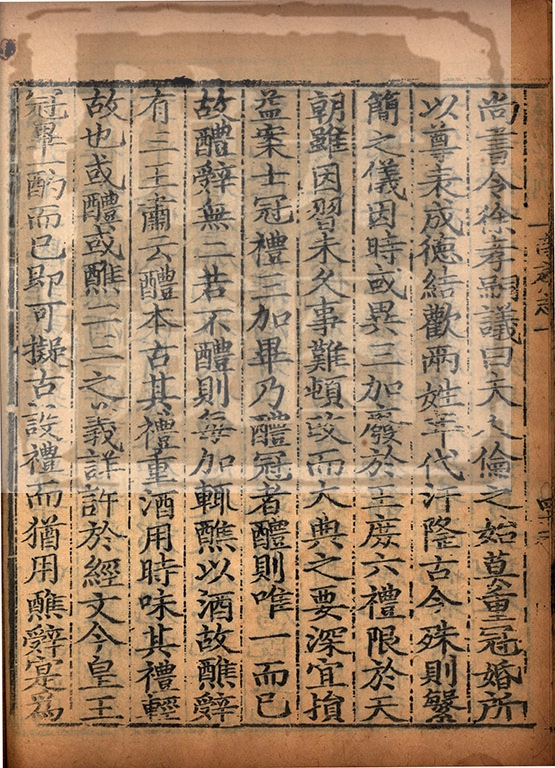 尚書令徐孝嗣議曰夫人倫之始莫重冠婚所
以尊表成德結歡兩姓年代汙隆古今殊則繁
簡之儀因時或異三加廢於王庶六禮限於天
朝雖因習未久事難頓改而大典之要深宜損
益案士冠禮三加畢乃醴冠者醴則唯一而已
故醴辭無二若不醴則每加輒醮以酒故醮辭
有三王肅云醴本古其禮重酒用時味其禮輕
故也或醴或醮二三之義詳許於經文今皇王
冠畢一酌而已即可擬古設禮而猶用醮辭寔爲